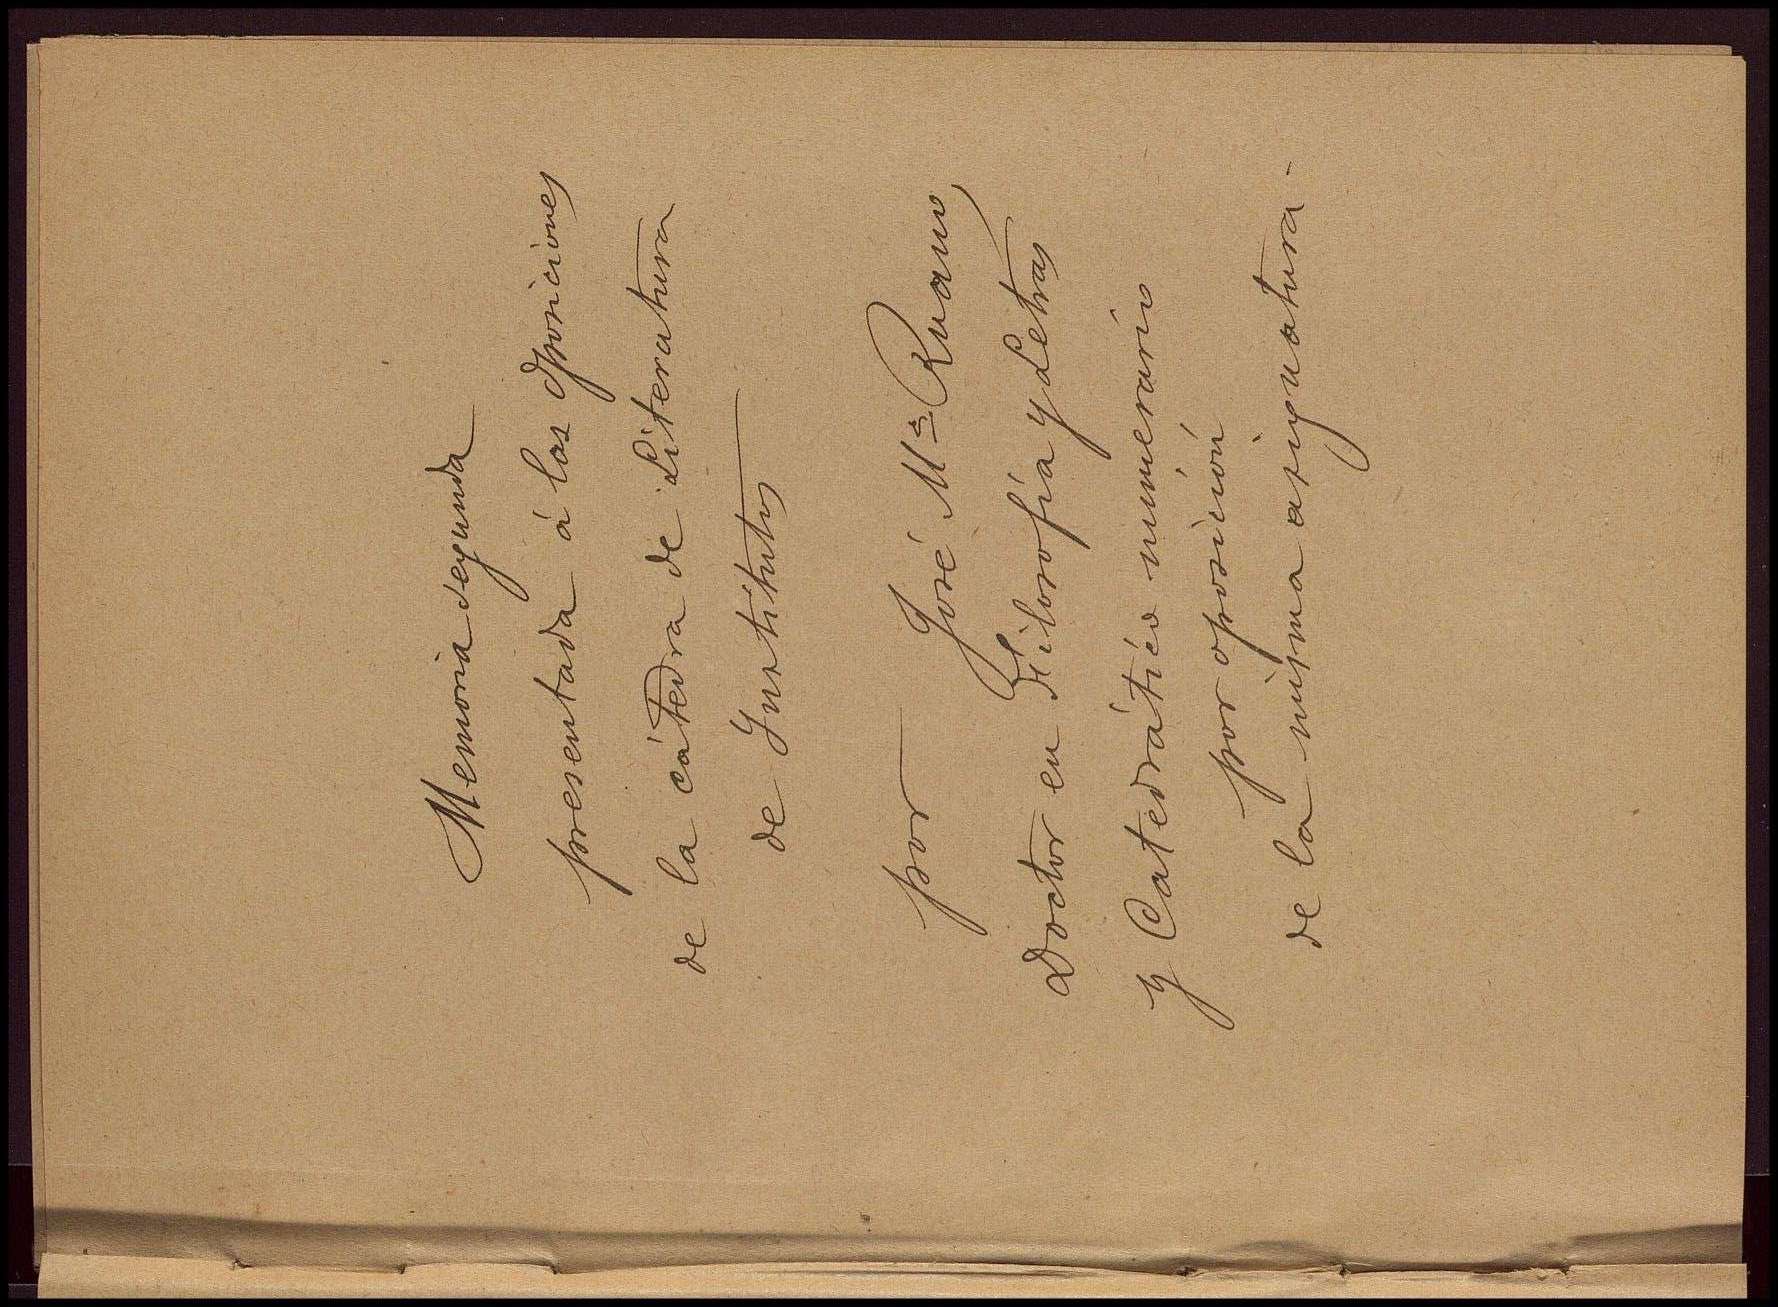 Memoria segunda
presentada á las oposiciones
de la cátedra de Literatura
de Institutos
por José Mª Ruano
Doctor en Filosofía y Letras
y Catedrático numerario
por oposición
de la misma asignatura.